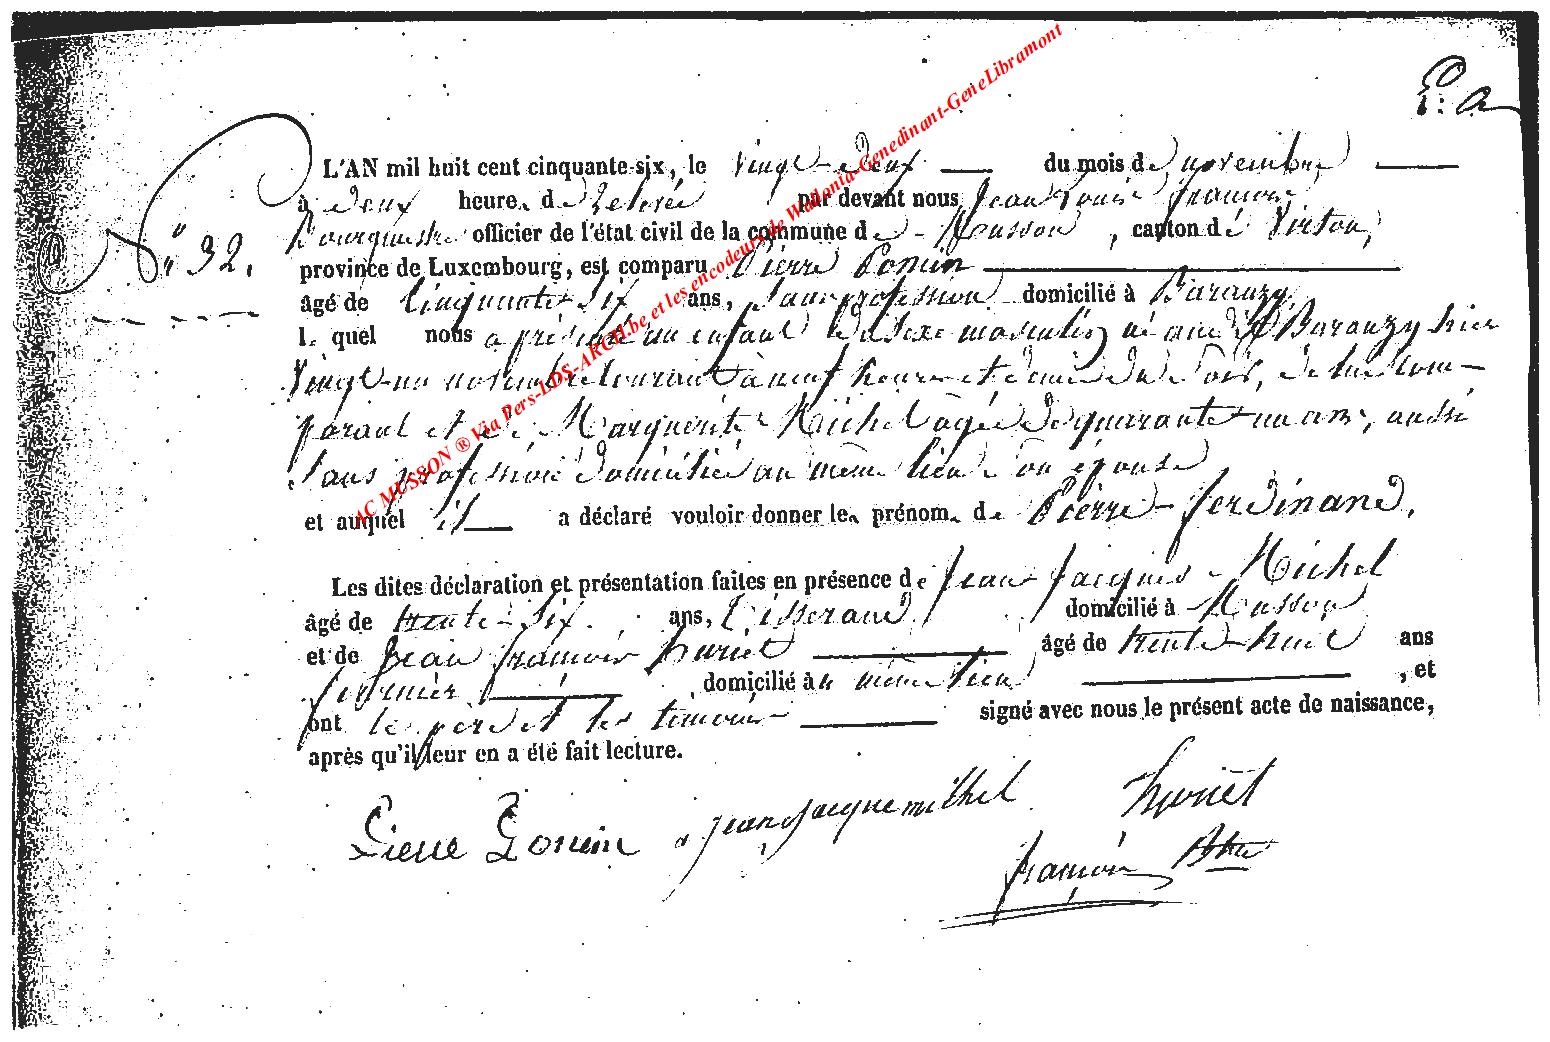 P: a
N° 32.
L'AN mil huit cent cinquante-six, le vingt-deux du mois de novembre
à deux heures de relevée par devant nous Jean Louis François
officier de l'état civil de la commune de Musson, canton de Virton,
province de Luxembourg, est comparu Pierre Ponin
âgé de cinquante-six ans, sans profession domicilié à Baranzy
lequel nous a présenté un enfant du sexe masculin né audit Baranzy hier
vingt-un novembre courant à neuf heures et demie du soir, de lui com-
parant et de Marguerite Michel agée de quarante-un ans, aussi
sans profession domiciliée au même lieu son épouse
et auquel il a déclaré vouloir donner les prénoms de Pierre-ferdinand.
Les dites déclaration et présentation faites en présence de Jean Jacques Michel
âgé de trente-six ans, tisserand domicilié à Musson
et de Jean françois huriet âgé de trente-huit ans
domicilié au même lieu, et
ont le père et les témoins signé avec nous le présent acte de naissance,
après qu'il leur en a été fait lecture.
Pierre Ponin jean jacque michel
françois
AC MUSSON ® Via Pers-LDS-ARCH.be et les encodeurs de Wallonia-Genedinant-GeneLibramont